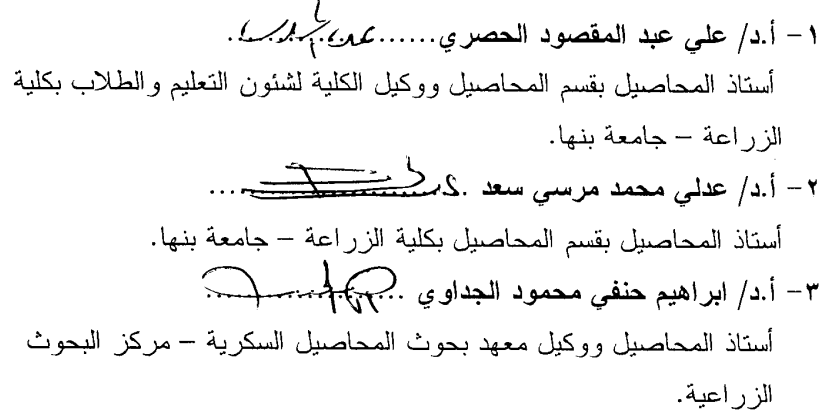 ١- أ.د/ علي عبد المقصود الحصري......
أستاذ المحاصيل بقسم المحاصيل ووكيل الكلية لشئون التعليم والطلاب بكلية
الزراعة – جامعة بنها.
٢- أ.د/ عدلي محمد مرسي سعد ..................
أستاذ المحاصيل بقسم المحاصيل بكلية الزراعة – جامعة بنها.
٣- أ.د/ ابراهيم حنفي محمود الجداوي ..................
أستاذ المحاصيل ووكيل معهد بحوث المحاصيل السكرية – مركز البحوث
الزراعية.